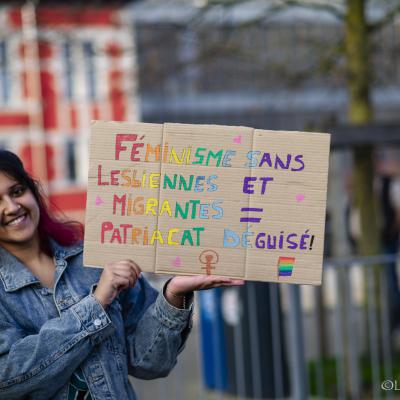 FÉMINISME SANS
LESBIENNES ET
MIGRANTES =
PATRIACAT DÉGUISÉ!
©L